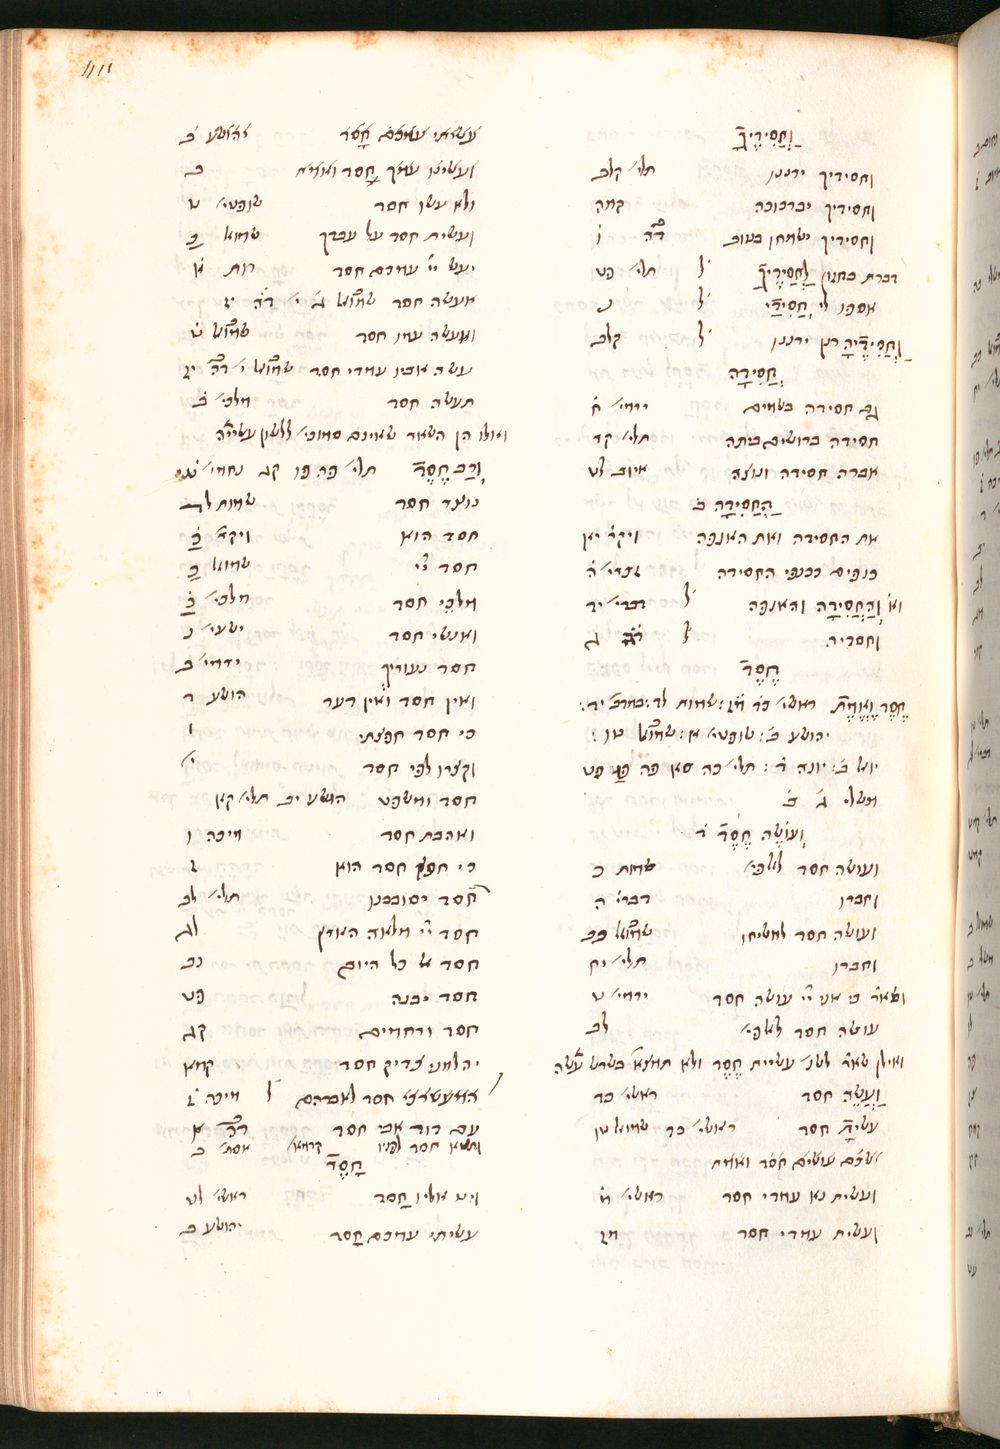 וַחֲסִידֶיךָ
וחסידיך ירננו תלי׳ קלב
וחסידיך יברכוכה קמה
וחסידיך ישמחו בטוב ו
דברת בחזון לַחֲסִידֶיךָ ל׳ תלי׳ פט
אספו לי חֲסִידָי ל׳ נ
וַחֲסִידֶיהָ רנן ירננו ל׳ קלב
חֲסִידָה
גם חסידה בשמים ירמי׳ ח
חסידה ברושים ביתה תלי׳ קד
אברה חסידה ונוצה איוב לט
הַחֲסִידָה ב
את החסידה ואת האנפה ויקר׳ יא
כנפים ככנפי החסידה זכרי׳ ה
וְהַחֲסִידָה והאנפה ל׳ דברי׳ יד
וחסדיה ל׳ ג
חֶסֶד
חֶסֶד וֶאֱמֶת ראשי׳ כד מז: שמות לד: במדב׳ יד:
יהושע ב׳: שופטי׳ א: שמואל טו:
יואל ב׳: יונה ד׳: תלי׳ כה סא פה פט
משלי ג׳ כ׳
וְעוֹשֶׂה חֶסֶד ד׳
ועושה חסד לאלפי׳ שמות כ
וחברו דברי׳ ה
ועושה חסד למשיחו שמואל כב
וחברו תלי׳ יח
כי אני יי׳ עושה חסד ירמי׳ ט
עושה חסד לאלפי׳ לב
ואילן שאר לשו׳ עשיית חֶסֶד ולא תמצא בשרש עשה
וַעֲשֵׂה חסד ראשי׳ כד
עשית חסד ראשי׳ כד שמואל טו
ישכם עושים חסד ואמת
ועשית נא עמדי חסד ראשי׳ מ
ועשית עמדי חסד מז
עשיתי עמכם חסד יהושע ב
ועשינו עמך חסד ואמת ב
ולא עשו חסד שופטי׳ ט
ועשית חסד על עבדך שמואל כ
יעש יי׳ עמכם חסד רות א
אעשה חסד שמואל ט׳ י׳ יט
ואעשה עמו חסד שמואל ט
עשה אביו עמדי חסד שמואל י׳ יט
תעשה חסד מלכי׳ ב
ואילו הן השאר שאינם סמוכי׳ ללשון עשייה
וְרַב חֶסֶד תלי׳ פה פו קג נחמי׳ ט
נוצר חסד שמות לד
חסד הוא ויקר׳ כ
חסד יי׳ שמואל כ
מלכי חסד מלכי׳ כ
ואנשי חסד ישעי׳ נ
חסד נעוריך ירמי׳ ב
ואין חסד ואין דעת הושע ד
כי חסד חפצתי ו
וקצרו לפי חסד י
חסד ומשפט הושע יב תלי׳ קא
ואהבת חסד מיכה ו
כי חפץ חסד הוא ז
חסד יסובבנו תלי׳ לב
חסד יי׳ מלאה הארץ לג
חסד אל כל היום נב
חסד יבנה פט
חסד ורחמים קג
יהלמני צדיק חסד קמא
חסד לאברהם ל׳ מיכה ז
עם דוד אבי חסד א
ותשא חסד לפניו אסת׳ ב
חָסֶד
ויט אליו חָסֶד ראשי׳ לט
עשיתי עמכם חָסֶד יהושע ב